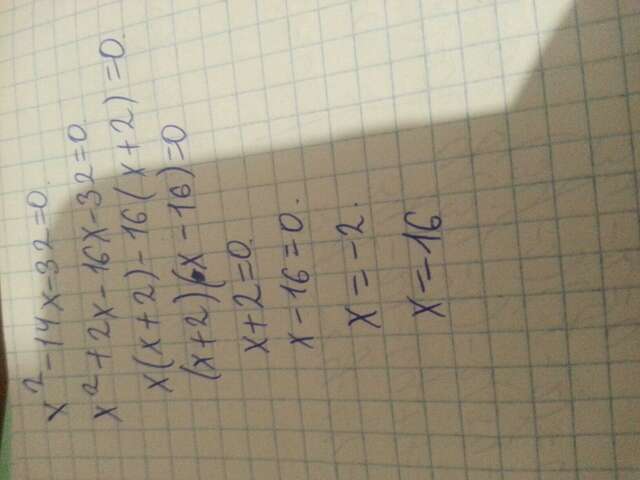 x² - 14x - 32 = 0.
x² + 2x - 16x - 32 = 0.
x(x+2) - 16(x+2) = 0.
(x+2)(x - 16) = 0
x + 2 = 0.
x - 16 = 0.
x = -2.
x = 16